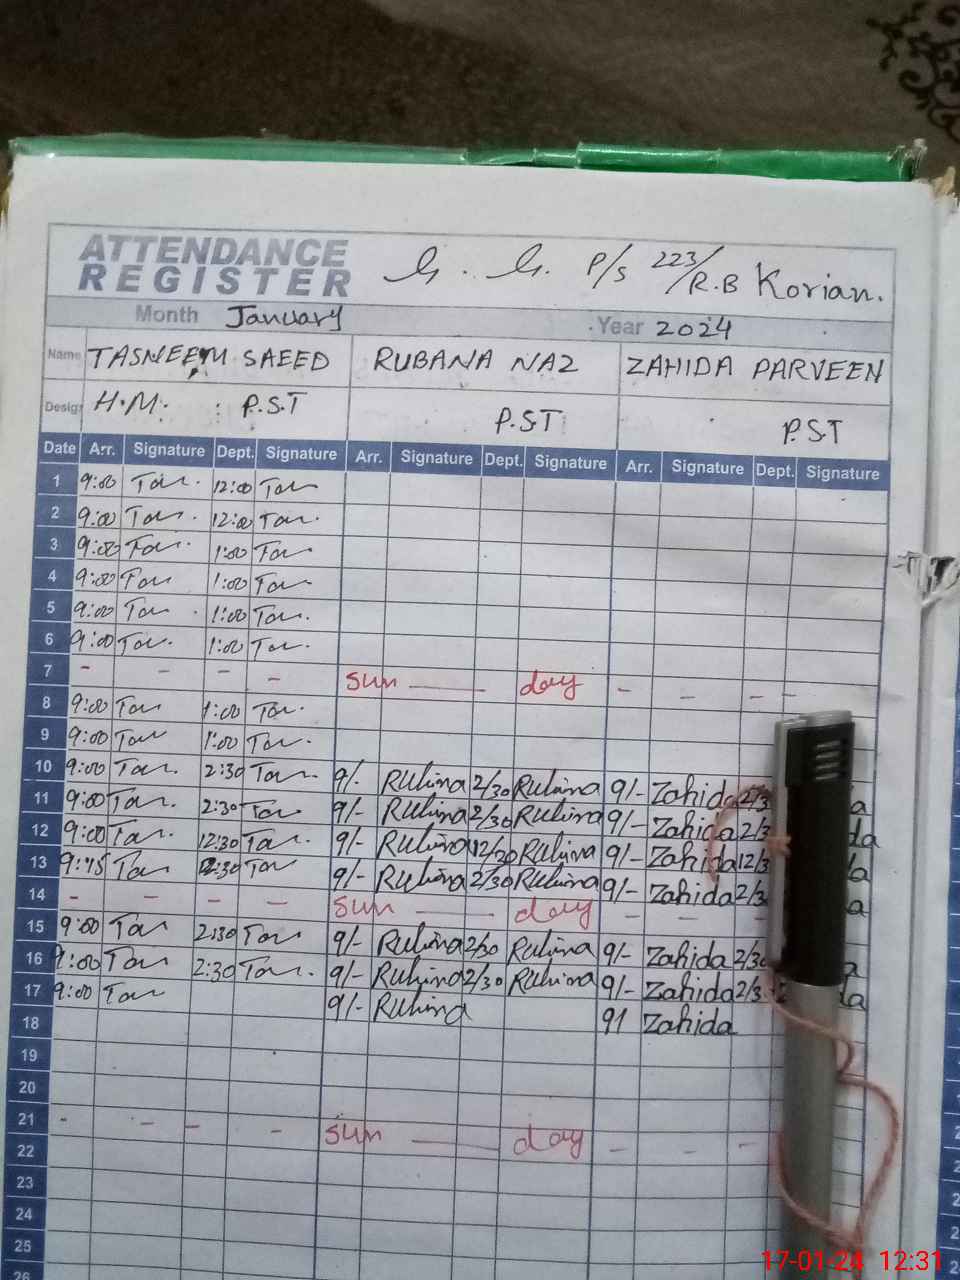 ATTENDANCE
REGISTER
G. G. P/S 223/R.B Korian.
Month January Year 2024
Name TASNEEM SAEED RUBANA NAZ ZAHIDA PARVEEN
Desig H.M. P.S.T P.S.T P.S.T
Date Arr. Signature Dept. Signature Arr. Signature Dept. Signature Arr. Signature Dept. Signature
1 9:00 Tas. 12:00 Tas
2 9:00 Tas. 12:00 Tas.
3 9:00 Tas. 1:00 Tas
4 9:00 Tas 1:00 Tas.
5 9:00 Tas 1:00 Tas.
6 9:00 Tas. 1:00 Tas.
7 - - - - sun —— day - - - -
8 9:00 Tas 1:00 Tas.
9 9:00 Tas 1:00 Tas.
10 9:00 Tas. 2:30 Tas. 9/- Rubina 2/30 Rubina 9/- Zahida 2/3
11 9:00 Tas. 2:30 Tas 9/- Rubina 2/30 Rubina 9/- Zahida 2/3
12 9:00 Tas. 12:30 Tas. 9/- Rubina Rubina 9/- Zahida 12/3
13 9:45 Tas 12:30 Tas 9/- Rubina 2/30 Rubina 9/- Zahida 2/3
14 - - - - sun —— day - - -
15 9:00 Tas 2:30 Tas 9/- Rubina 2/30 Rubina 9/- Zahida 2/30
16 9:00 Tas 2:30 Tas. 9/- Rubina 2/30 Rubina 9/- Zahida 2/3
17 9:00 Tas 9/- Rubina 9/ Zahida
18
19
20
21 - - - - sun —— day - -
22
23
24
25
26
17-01-24 12:31